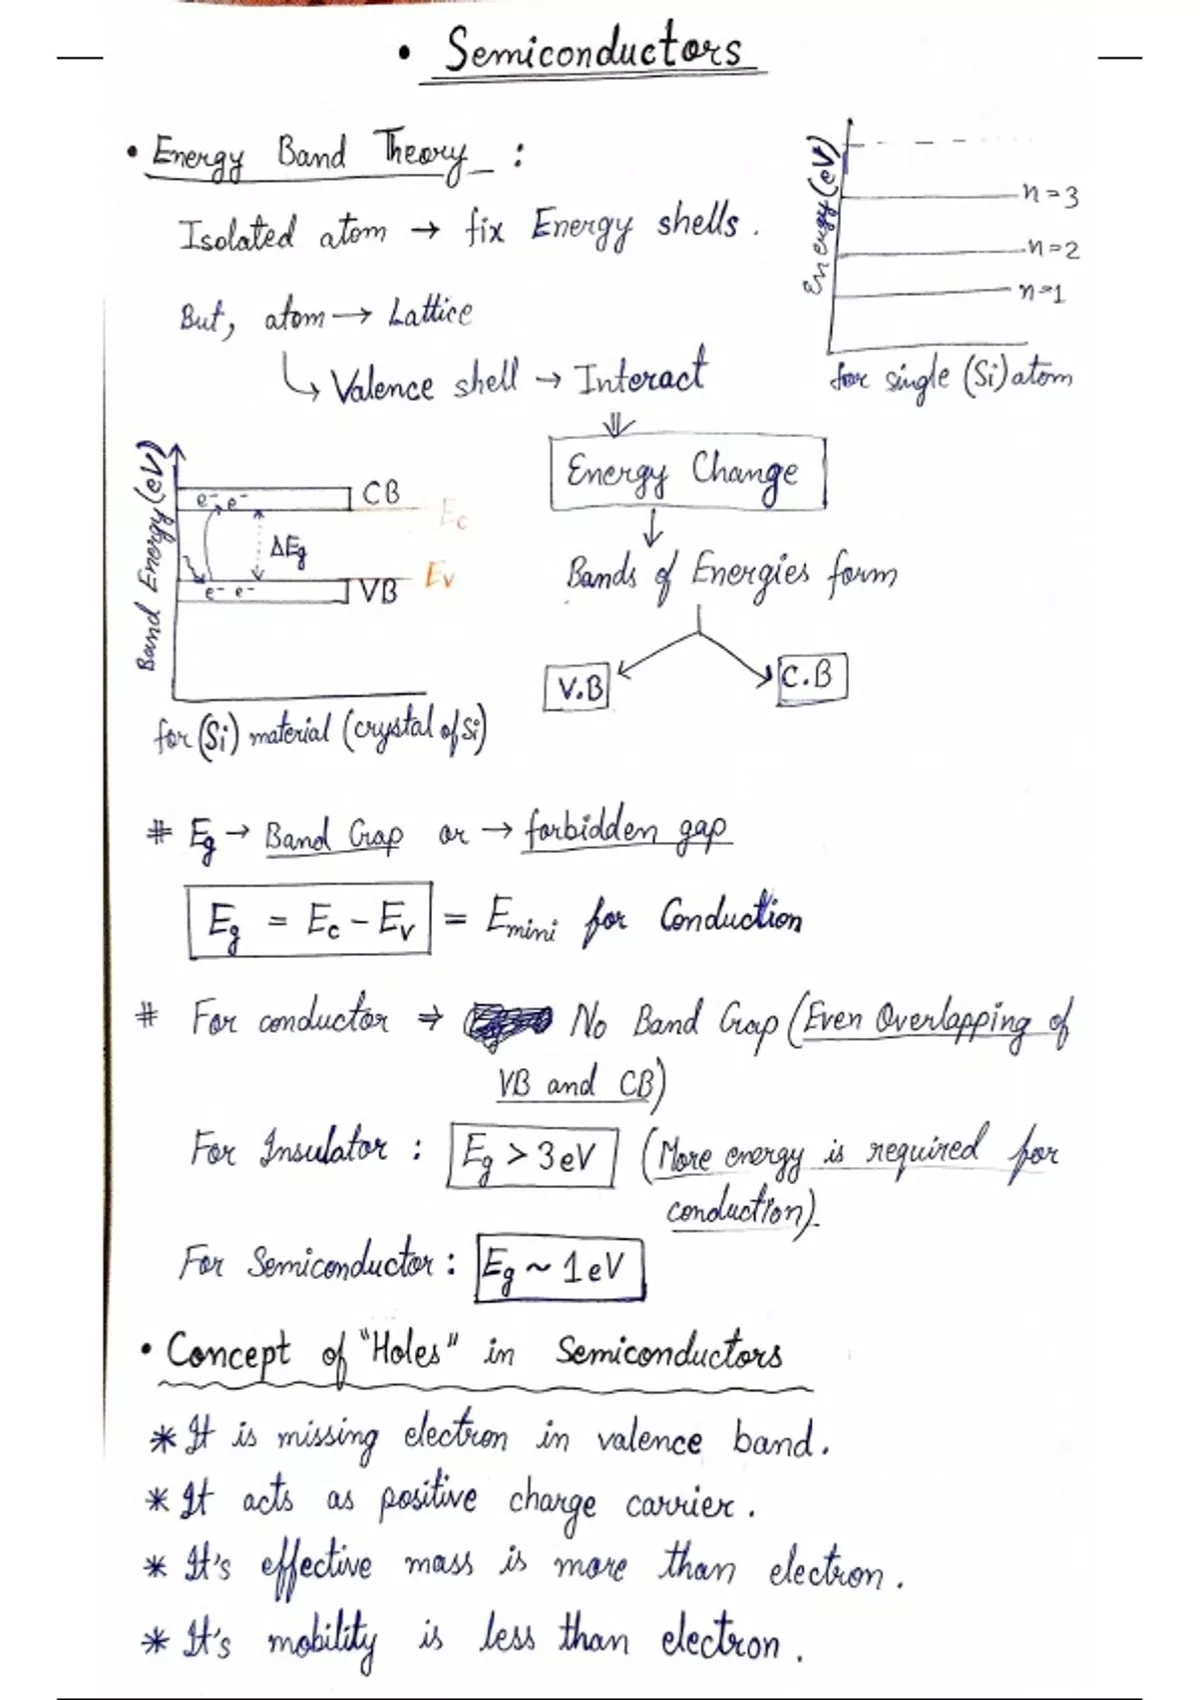 • Semiconductors
• Energy Band Theory :
Isolated atom → fix Energy shells.
But, atom → Lattice
↳ Valence shell → Interact
Energy (eV)
n=3
n=2
n=1
for single (Si) atom
⇓
Energy Change
↓
Bands of Energies form
V.B
C.B
Band Energy (eV)
e⁻ e⁻
CB
Ec
ΔEg
Ev
e⁻ e⁻
VB
for (Si) material (crystal of Si)
# Eg → Band Gap or → forbidden gap
Eg = Ec - Ev = Emini for Conduction
# For conductor ⇒ No Band Gap (Even Overlapping of
VB and CB)
For Insulator : Eg > 3eV (More energy is required for
conduction).
For Semiconductor : Eg ~ 1eV
• Concept of "Holes" in Semiconductors
* It is missing electron in valence band.
* It acts as positive charge carrier.
* It's effective mass is more than electron.
* It's mobility is less than electron.